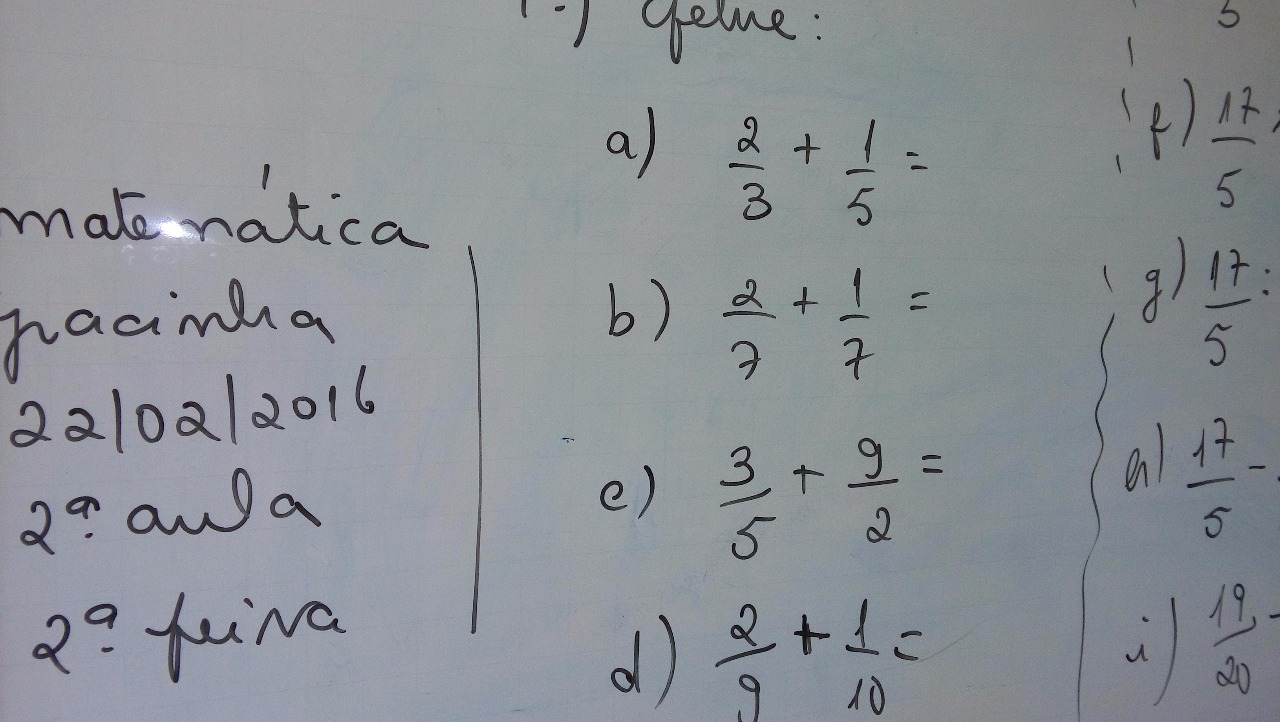 matemática
pacinha
22/02/2016
2ª aula
2ª feira
1-) Efetue:
a) 2/3 + 1/5 =
b) 2/7 + 1/7 =
c) 3/5 + 9/2 =
d) 2/9 + 1/10 =
5
f) 17/5
g) 17/5 :
h) 17/5 -
i) 19/20 -